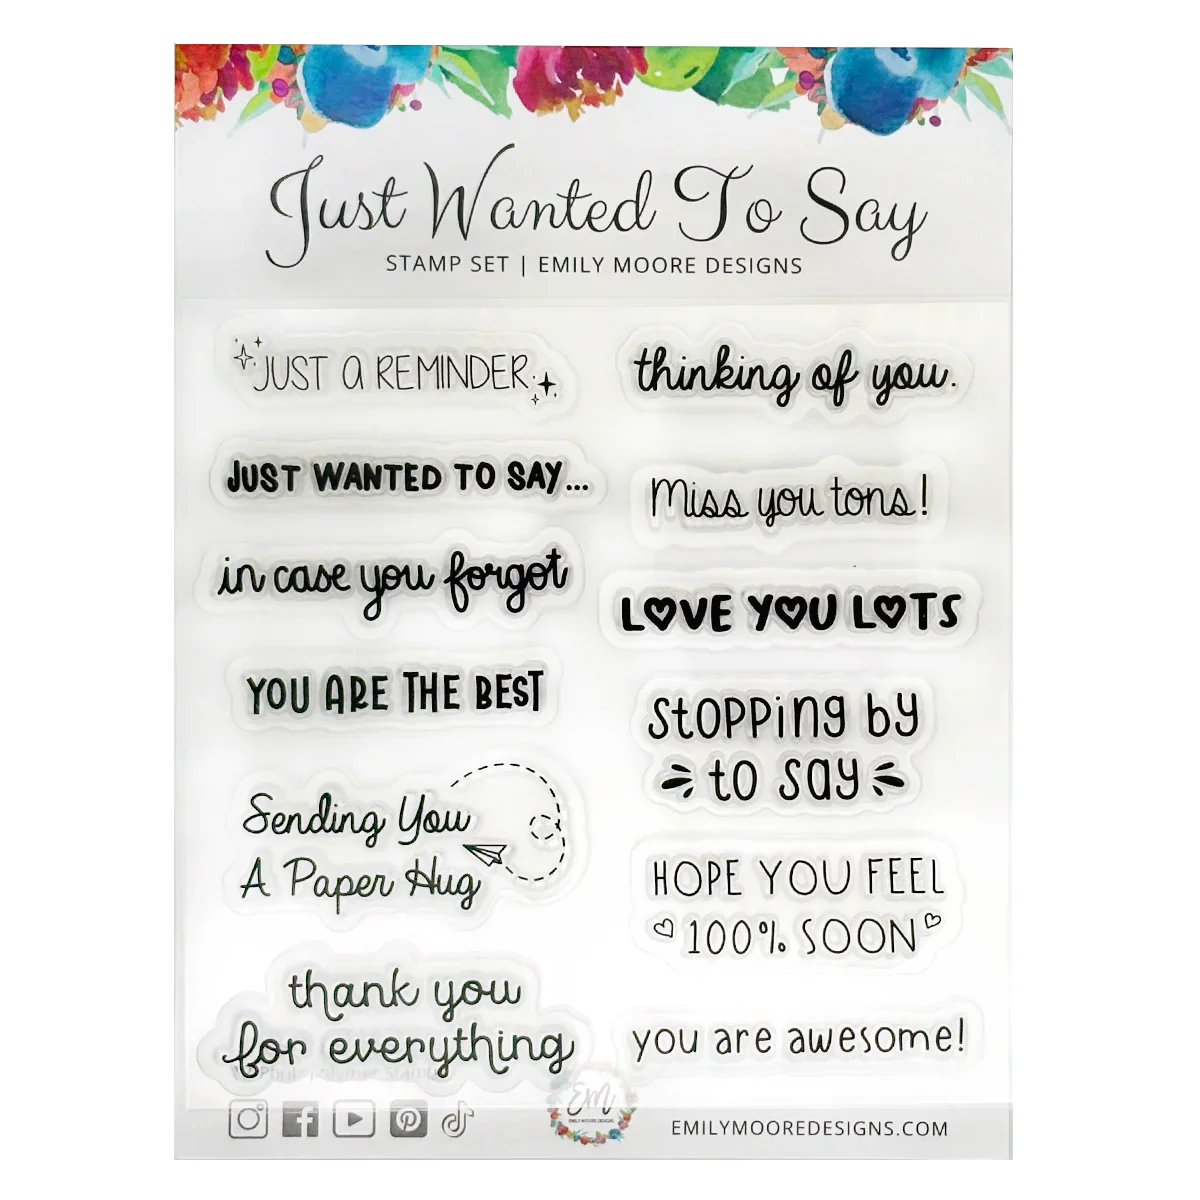 Just Wanted To Say
STAMP SET | EMILY MOORE DESIGNS
JUST a REMINDER
JUST WANTED TO SAY...
in case you forgot
YOU ARE THE BEST
Sending You
A Paper Hug
thank you
for everything
Photopolymer Stamp
thinking of you.
Miss you tons!
LOVE YOU LOTS
stopping by
to say
HOPE YOU FEEL
100% SOON
you are awesome!
EM
EMILY MOORE DESIGNS
EMILYMOOREDESIGNS.COM